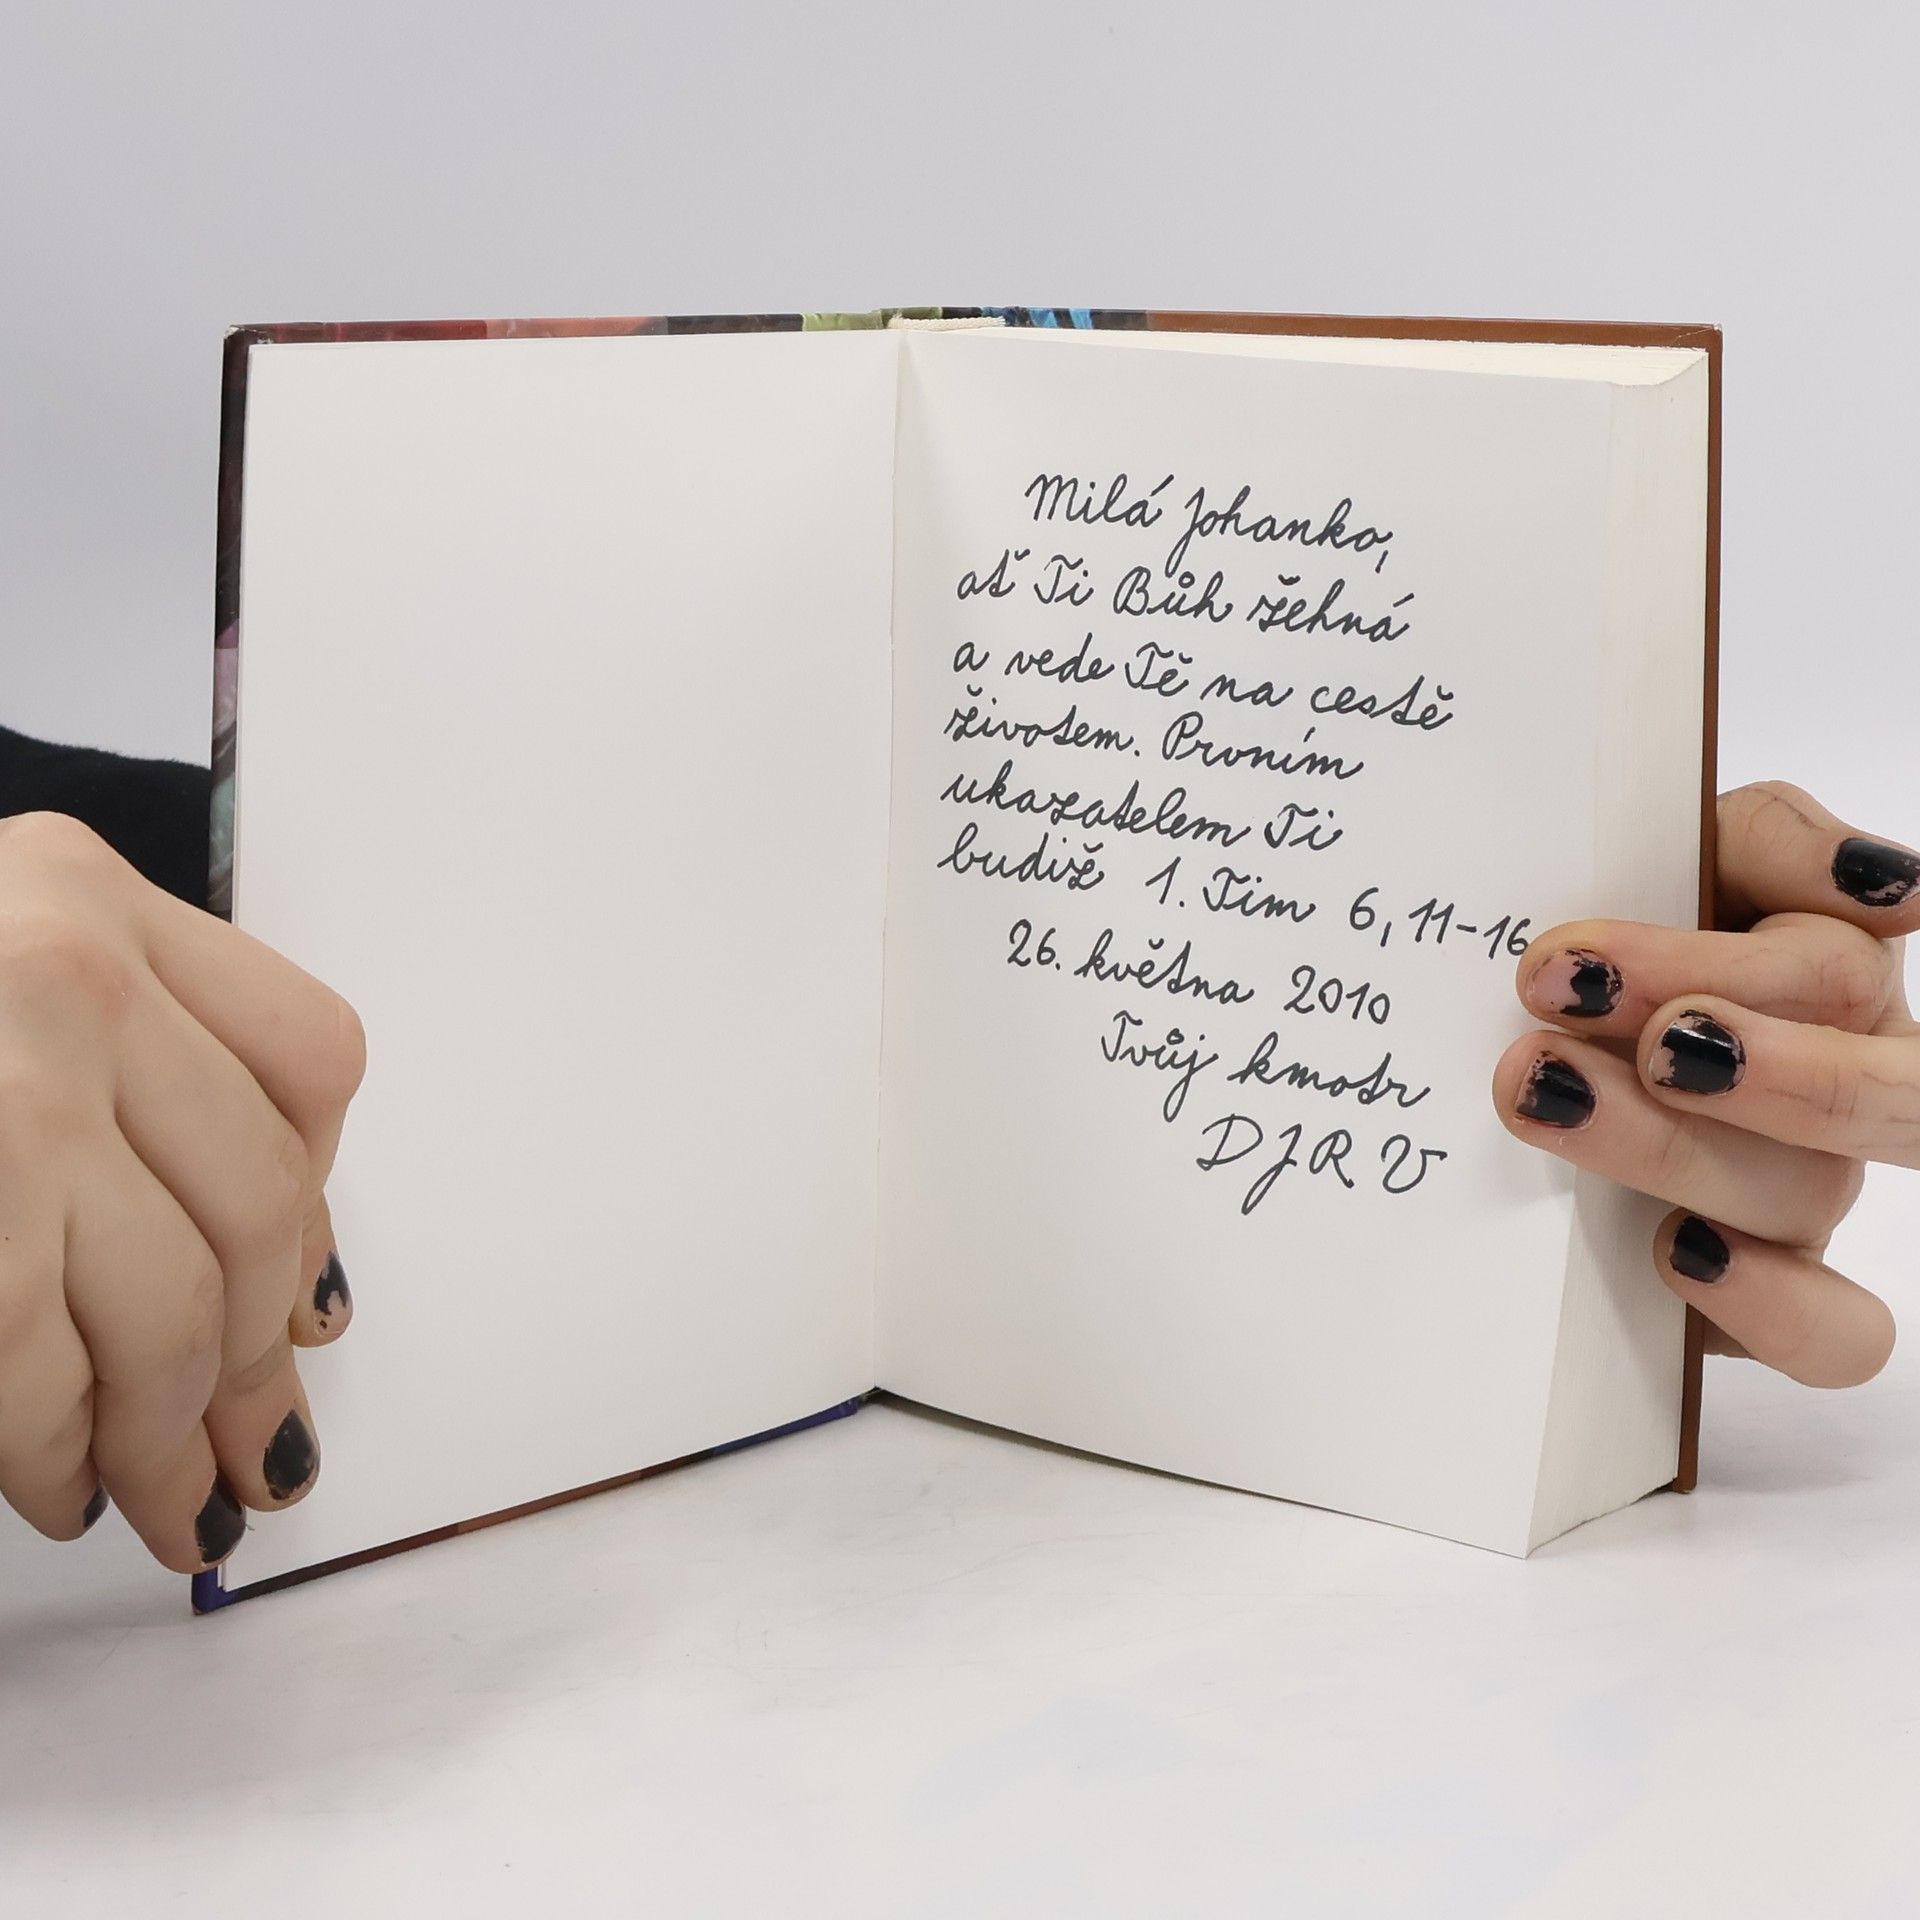 Milá Johanko,
ať Ti Bůh žehná
a vede Tě na cestě
životem. Prvním
ukazatelem Ti
budiž 1. Tim 6, 11-16
26. května 2010
Tvůj kmotr
DJR V